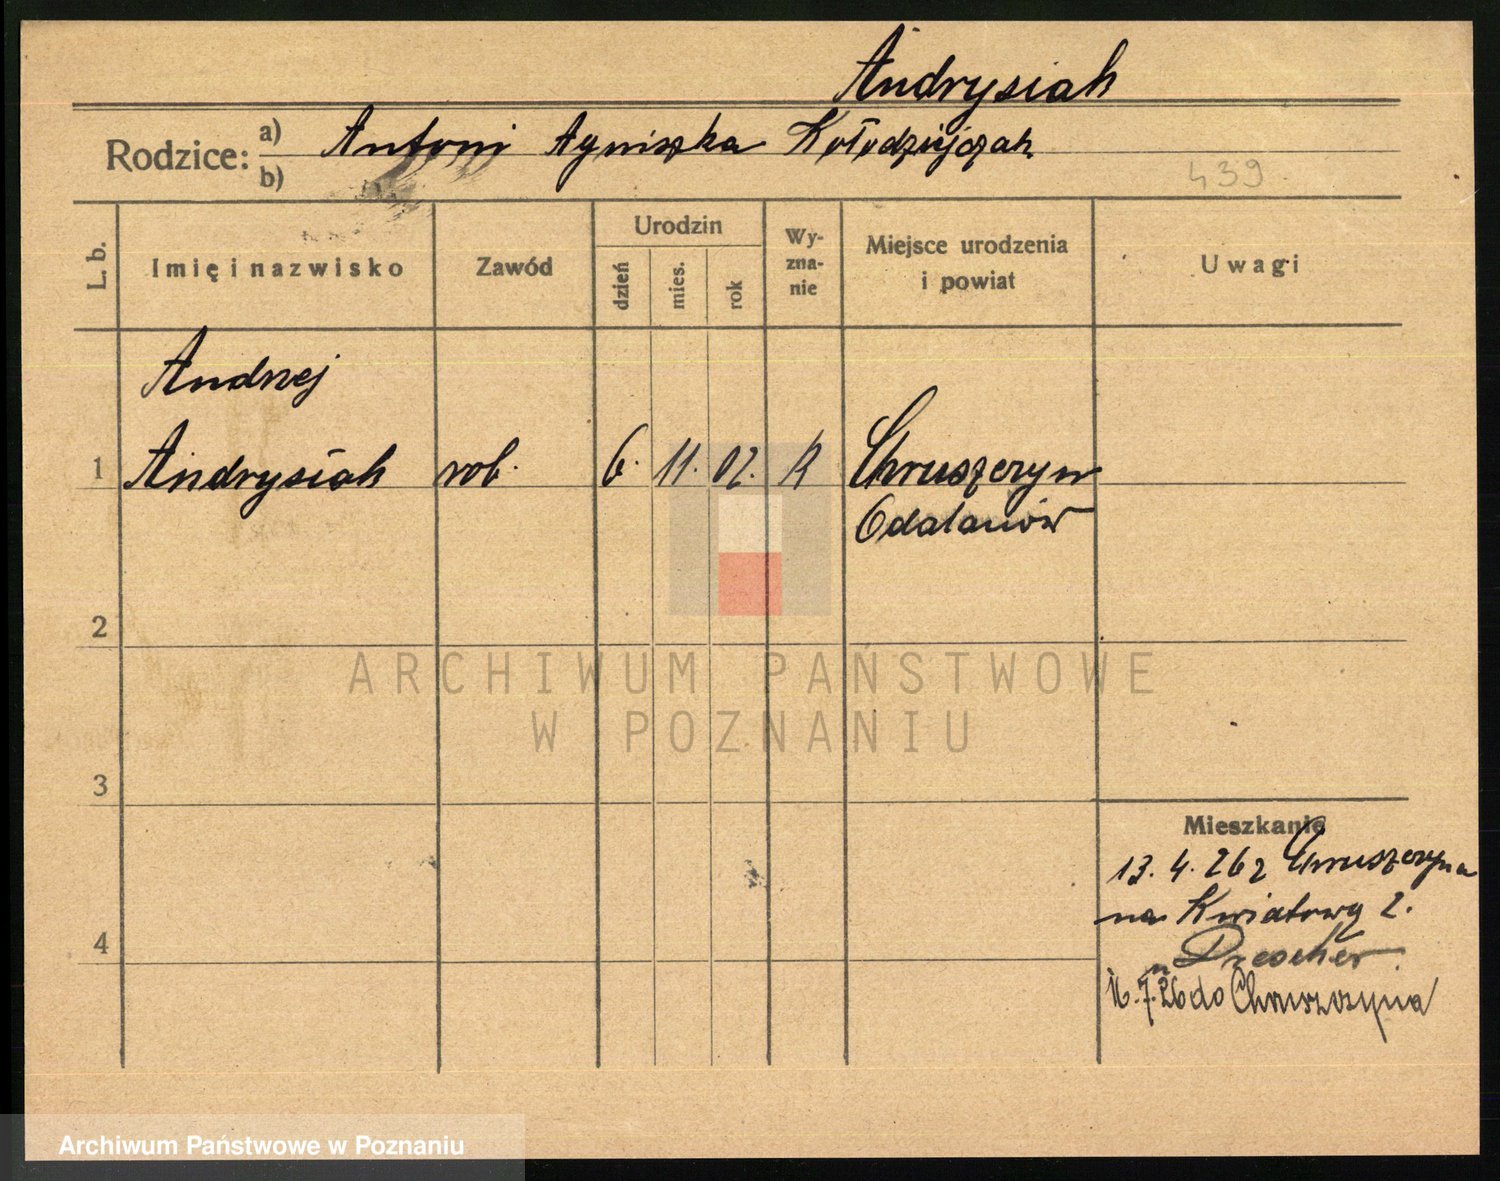 Andrysiak
Rodzice: a) Antoni Agniszka Kołodziejczak
b)
439
L. b. Imię i nazwisko Zawód Urodzin dzień mies. rok Wy-zna-nie Miejsce urodzenia i powiat Uwagi
Andrzej
1 Andrysiak rob. 6. 11. 02. R Chruszczyn
Odalanów
2
ARCHIWUM PAŃSTWOWE
W POZNANIU
3
Mieszkanie
13. 4. 26 z Chruszczyna
na Kwiatową 2.
4
u Drescher
16. 7. 26 do Chruszczyna
Archiwum Państwowe w Poznaniu